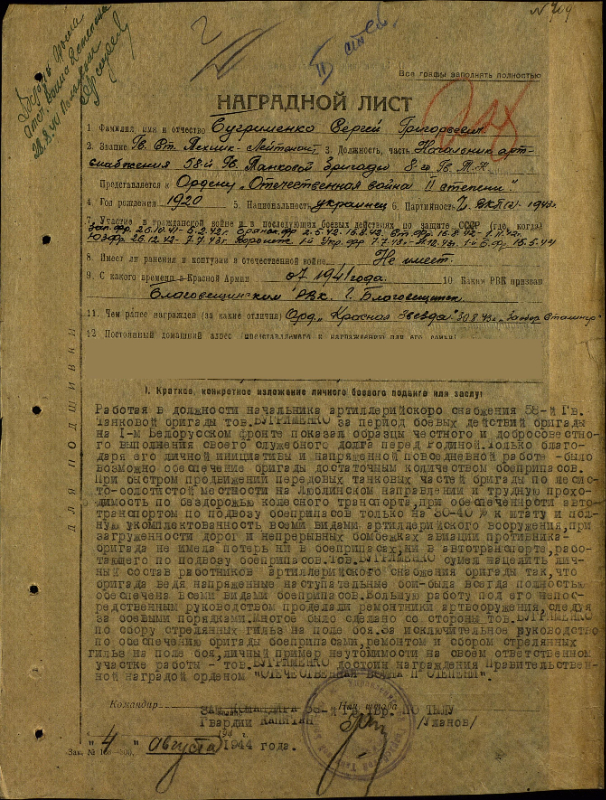 N 219
Все графы заполнять полностью
НАГРАДНОЙ ЛИСТ
1. Фамилия, имя и отчество Бугрименко Сергей Григорьевич
2. Звание Гв. Ст. Техник-Лейтенант 3. Должность, часть Начальник арт-
снабжения 58й Гв. Танковой Бригады 8 го Гв. Т.К.
Представляется к Ордену „Отечественная война II степени“
4. Год рождения 1920 5. Национальность украинец 6. Партийность 1943г.
7. Участие в гражданской войне и в последующих боевых действиях по защите СССР (где, когда)
Зап. фр. 26.10.41-5.2.42г. Брянск. фр 2.5.42-16.8.42
Юз фр 26.12.42-7.7.43г. Воронеж. 1й Укр. фр 7.7.43г. 1-й Б. Фр.
8. Имеет ли ранения и контузии в отечественной войне Не имеет.
9. С какого времени в Красной Армии 07.1941 года. 10. Каким РВК призван
Благовещинским РВК. г. Благовещинск
11. Чем ранее награжден (за какие отличия) Орд. „Красная Звезда“ 30.8.43г.
12. Постоянный домашний адрес представляемого к награждению или его семьи
ДЛЯ ПОДШИВКИ
I. Краткое, конкретное изложение личного боевого подвига или заслуг
Работая в должности начальника артиллерийского снабжения 58-й Гв.
Танковой бригады тов. БУГРИМЕНКО за период боевых действий бригады
на I-м Белорусском фронте показал образцы честного и добросовестно-
го выполнения своего служебного долга перед родиной. Только благо-
даря его личной инициативы и напряженной повседневной работе -было
возможно обеспечение бригады достаточным количеством боеприпасов.
При быстром продвижении передовых танковых частей бригады по лесис-
то-болотистой местности на Люблинском направлении и трудную прохо-
димость по бездорожью колесного транспорта, при обеспеченности авто-
транспортом по подвозу боеприпасов только на 30-40% к штату и пол-
ную укомплектованность всеми видами артиллерийского вооружения, при
загруженности дорог и непрерывных бомбежках авиации противника-
бригада не имела потерь ни в боеприпасах, ни в автотранспорте, рабо-
тающего по подвозу боеприпасов. Тов. БУГРИМЕНКО сумел нацелить лич-
ный состав работников артиллерийского снабжения бригады так, что
бригада ведя напряженные наступательные бои-была всегда полностью
обеспечена всеми видами боеприпасов. Большую работу под его непос-
редственным руководством проделали ремонтники артвооружения, следуя
за боевыми порядками. Много было сделано со стороны тов. БУГРИМЕНКО
по сбору стрелянных гильз на поле боя. За исключительное руководство
по обеспечению бригады боеприпасами, ремонтом и сбором стрелянных
гильз на поле боя, личный пример неутомимости на своем ответственном
участке работы - тов. БУГРИМЕНКО достоин награждения Правительствен-
ной наградой орденом "ОТЕЧЕСТВЕННАЯ ВОЙНА П СТЕПЕНИ".
Командир Нач. штаба
Зам. Командира 58-й Гв. ТБр. по тылу
Гвардии Капитан /Уланов/
194 г.
"4" августа 1944 года.